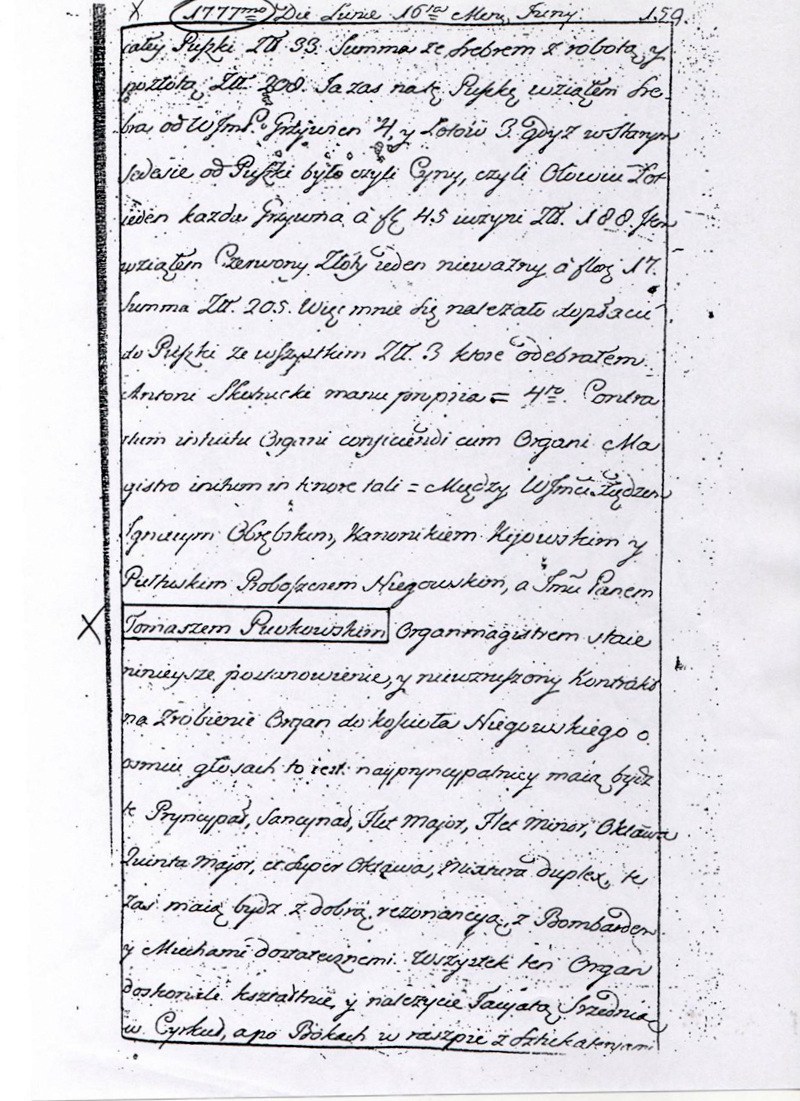 X 1777mo Die Lunae 16ta Men. Juny. 159.
całey Puszki Złł 33. Summa ze srebrem z robotą y
pozłotą Złł. 208. Ja zas na tę Puszkę wziąłem sre-
bra od WJmś. Grzywien 4, y Lotów 3 gdyż w starym
sedesie od Puszki było czyli Cyny, czyli Ołowiu Łot
ieden każda Grzywna à fl 45 uczyni Złł. 188. Item
wziąłem Czerwony Złoty ieden nieważny à flor 17.
Summa Złł. 205. Więc mnie się należało dopłacić
do Puszki ze wszystkim Złł. 3 ktore odebrałem
Antoni manu propria = 4to. Contra
ctum intuitu Organi conficiendi cum Organi Ma
gistro initum in tenore tali = Między WJmci Xiędzem
Ignacym Obrębskim, Kanonikiem Kijowskim y
Pułtuskim Proboszczem Niegowskim, a Jmci Panem
X Tomaszem Pawkowskim Organmagistrem staie
ninieysze postanowienie, y niewzruszony Kontrakt
na zrobienie Organ do kościoła Niegowskiego o
osmiu głosach to iest: naypryncypalniey maią bydz
te Pryncypał, Salcynał, Flet Major, Flet Minor, Oktawa
Quinta Major, et Super Oktawa, Mixtura duplex, te
zas maią bydz z dobrą rezonancyą, z Bombardem
y Miechami dostatecznemi. Wszystek ten Organ
doskonale kształtnie, y należycie Facyatą Srzednią
w Cyrkuł, a po Bokach w raszpie z Sztukateryami